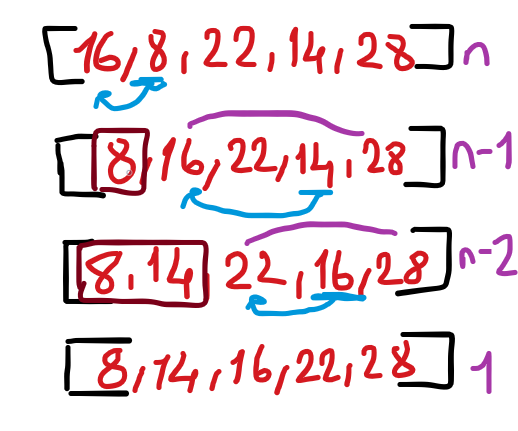 [16, 8, 22, 14, 28] n
[8, 16, 22, 14, 28] n-1
[8, 14, 22, 16, 28] n-2
[8, 14, 16, 22, 28] 1